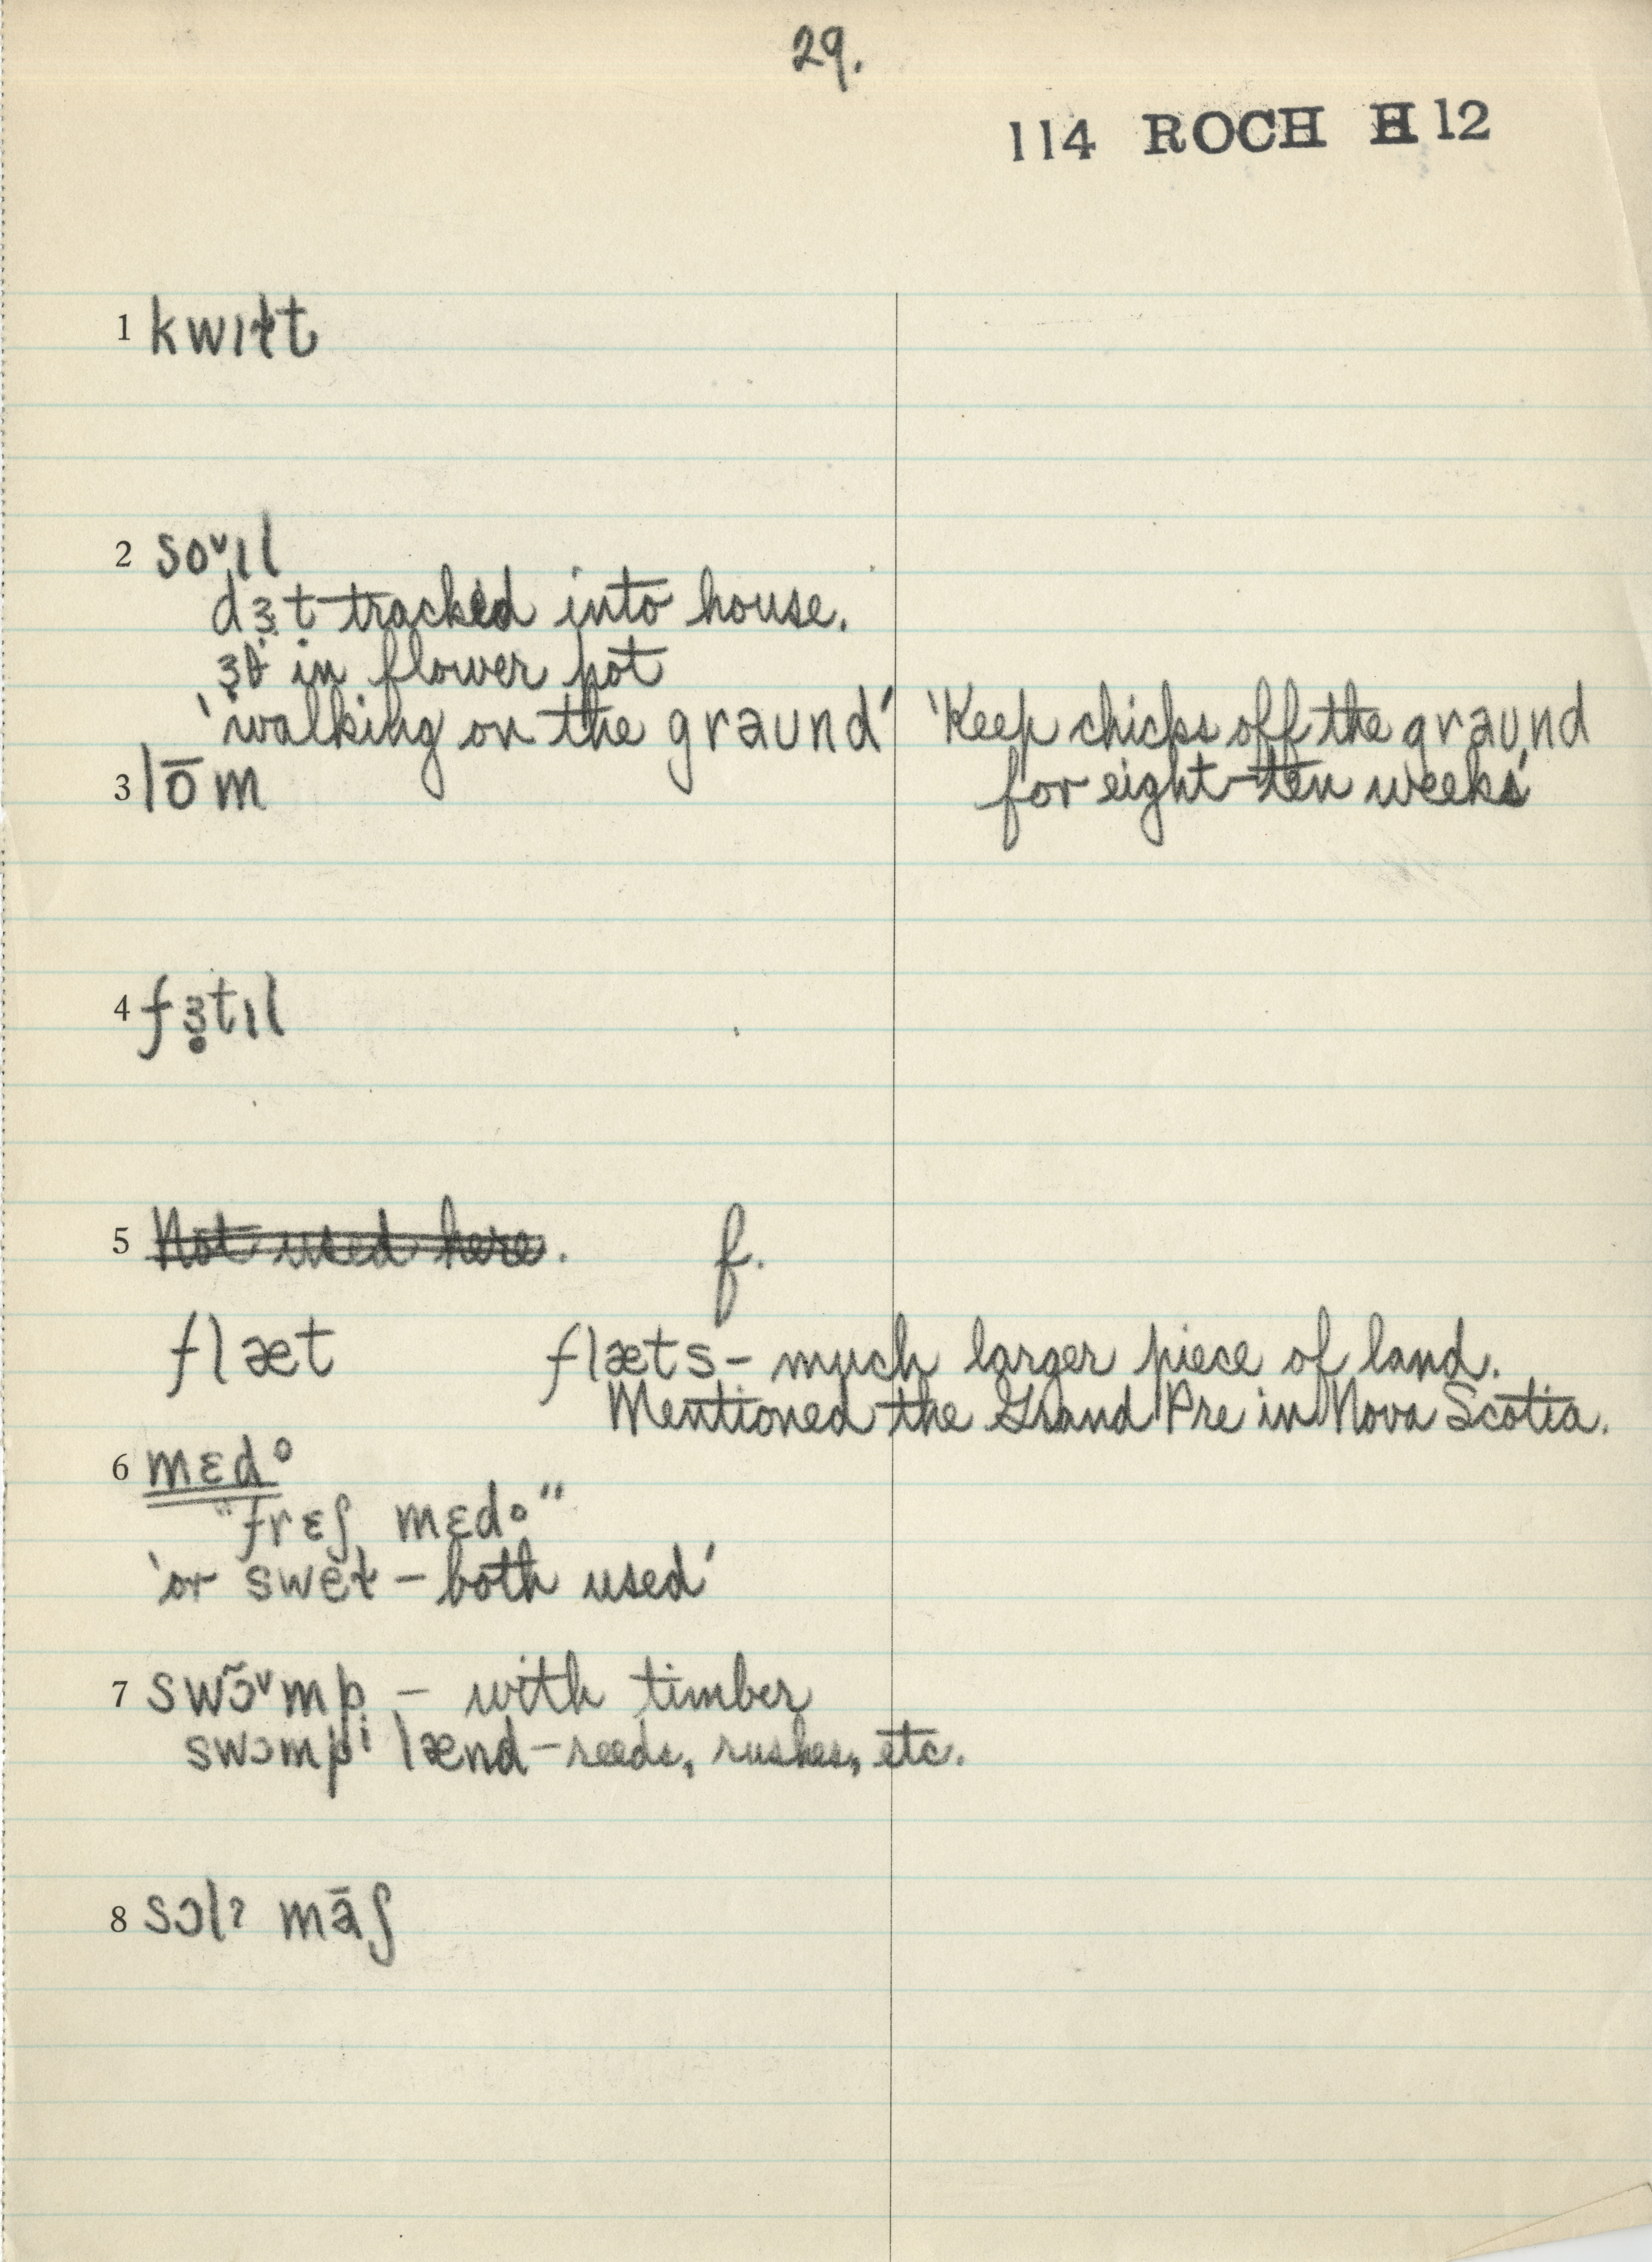 29.
114 ROCH H 12
1 kwɪɫt
2 soᵛɪl
dɜ̣t tracked into house.
ɜ̣θ in flower pot
'walking on the graund' 'Keep chicks off the graund
for eight-ten weeks'
3 lōm
4 fɜ̥tɪl
5 Not used here. f.
flæt flæts – much larger piece of land.
Mentioned the Grand Pre in Nova Scotia.
6 mɛdº
"frɛʃ mɛdº"
'or swet – both used'
7 swɔ̃ᵛmp – with timber
swɔmpⁱ lænd – reeds, rushes, etc.
8 sɔlˀ māʃ